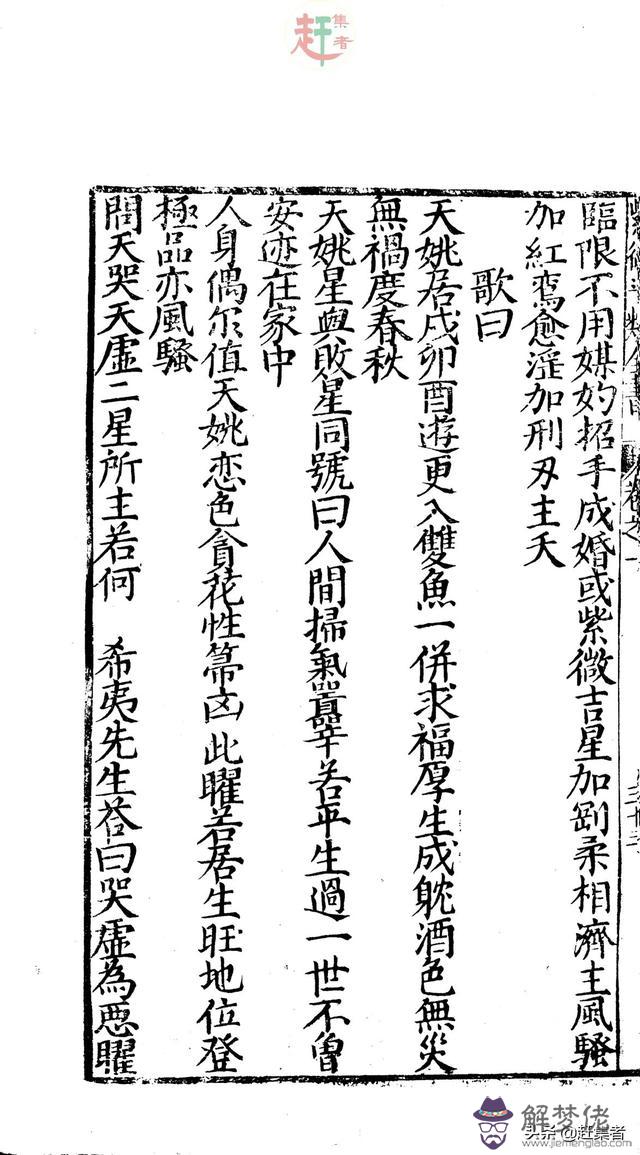 趕集者
臨限不用媒妁招手成婚或紫微吉星加剛柔相濟主風騷
加紅鸞愈淫加刑刃主夭
歌曰
天姚居戌卯酉遊更入雙魚一併求福厚生成躭酒色無災
無禍度春秋
天姚星與敗星同號曰人間掃氣囂辛若平生過一世不曾
安迹在家中
人身偶尔值天姚恋色貪花性帶凶此曜若居生旺地位登
極品亦風騷
問天哭天虛二星所主若何 希夷先生荅曰哭虛為惡曜
解梦佬
www.jiemenglao.com
头杀@赶集者